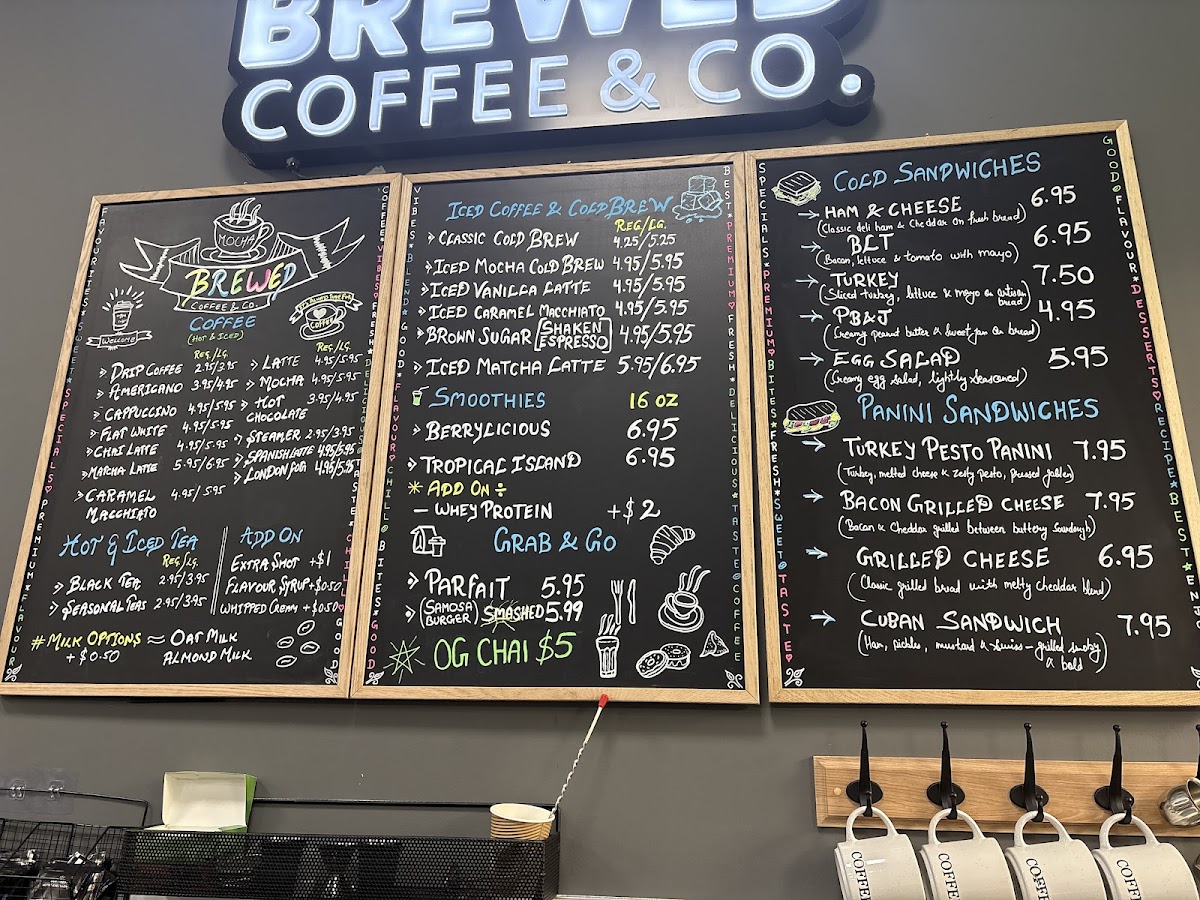 BREWED
COFFEE & CO.
FAVOURITES * SWEET * SPECIALS ♡ PREMIUM * FLAVOUR
MOCHA
BREWED
COFFEE & CO.
WELCOME
COFFEE
COFFEE
(HOT & ICED)
REG/LG.
DRIP COFFEE 2.95/3.95
AMERICANO 3.95/4.95
CAPPUCCINO 4.95/5.95
FLAT WHITE 4.95/5.95
CHAI LATTE 4.95/5.95
MATCHA LATTE 5.95/6.95
CARAMEL 4.95/5.95
MACCHIATO
REG/LG.
LATTE 4.95/5.95
MOCHA 4.95/5.95
HOT 3.95/4.95
CHOCOLATE
STEAMER 2.95/3.95
SPANISH LATTE 4.95/5.95
LONDON FOG 4.95/5.95
HOT & ICED TEA
REG/LG.
BLACK TEA 2.95/3.95
SEASONAL TEAS 2.95/3.95
ADD ON
EXTRA SHOT +$1
FLAVOUR SYRUP +$0.50
WHIPPED CREAM +$0.50
# MILK OPTIONS ≈ OAT MILK
+ $0.50 ALMOND MILK
COFFEE * VIBES FRESH * DELICIOUS TASTE * CHILL GOOD
VIBES * BLEND * GOOD FLAVOUR CHILL BITES * GOOD
ICED COFFEE & COLD BREW
REG./LG.
CLASSIC COLD BREW 4.25/5.25
ICED MOCHA COLD BREW 4.95/5.95
ICED VANILLA LATTE 4.95/5.95
ICED CARAMEL MACCHIATO 4.95/5.95
BROWN SUGAR SHAKEN ESPRESSO 4.95/5.95
ICED MATCHA LATTE 5.95/6.95
SMOOTHIES 16 OZ
BERRYLICIOUS 6.95
TROPICAL ISLAND 6.95
* ADD ON ÷
– WHEY PROTEIN +$2
GRAB & GO
PARFAIT 5.95
(SAMOSA BURGER) SMASHED 5.99
OG CHAI $5
BEST * PREMIUM FRESH * DELICIOUS * TASTE COFFEE
SPECIALS * PREMIUM BITES * FRESH * SWEET TASTE
COLD SANDWICHES
HAM & CHEESE 6.95
(Classic deli ham & Cheddar on fresh bread)
BLT 6.95
(Bacon, lettuce & tomato with mayo)
TURKEY 7.50
(Sliced turkey, lettuce & mayo on artisan bread)
PB&J 4.95
(Creamy peanut butter & sweet jam on bread)
EGG SALAD 5.95
(Creamy egg salad, lightly seasoned)
PANINI SANDWICHES
TURKEY PESTO PANINI 7.95
(Turkey, melted cheese & zesty pesto, pressed)
BACON GRILLED CHEESE 7.95
(Bacon & Cheddar grilled between buttery sourdough)
GRILLED CHEESE 6.95
(Classic grilled bread with melty cheddar blend)
CUBAN SANDWICH 7.95
(Ham, pickles, mustard & swiss – grilled smoky
& bold)
GOOD FLAVOUR * DESSERTS RECIPE * BEST
COFFEE
COFFEE
COFFEE
COFFEE